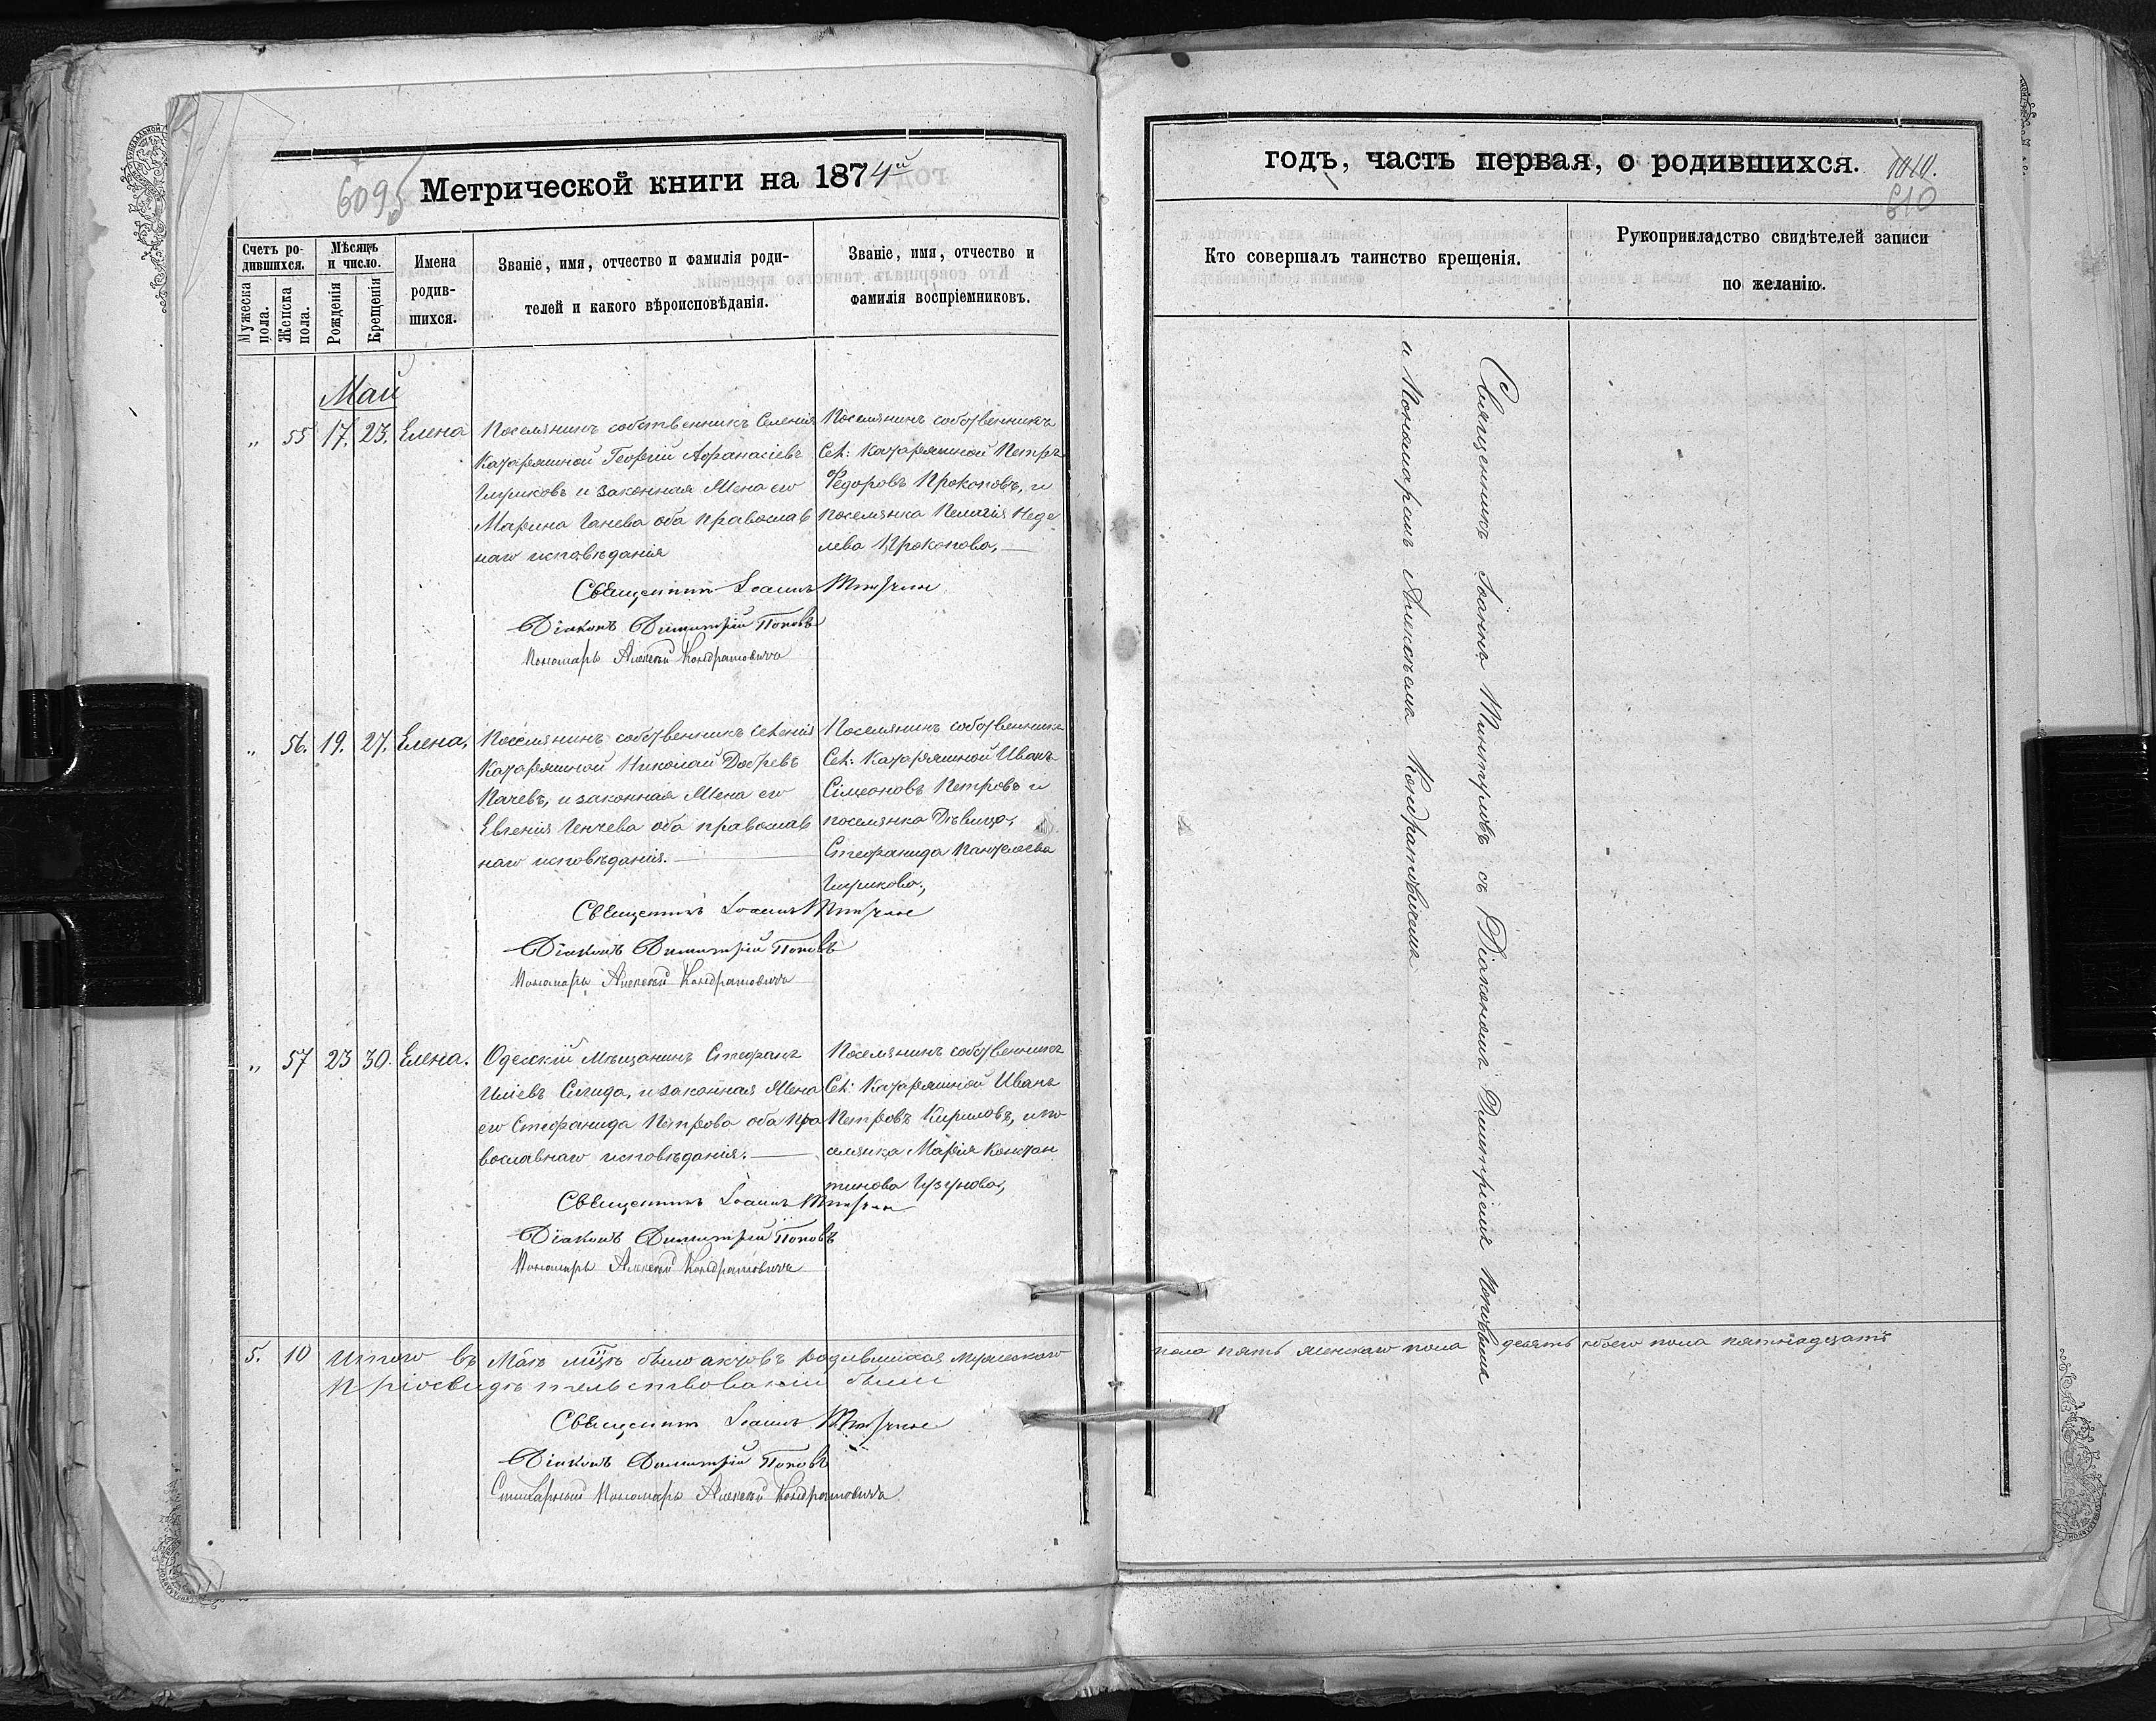 609
Метрической книги на 1874й
Счетъ ро-
дившихся.
Мужеска
пола.
Женска
пола.
Мѣсяцъ
и число.
Рожденія
Крещенія
Имена
родив-
шихся.
Званіе, имя, отчество и фамилія роди-
телей и какого вѣроисповѣданія.
Званіе, имя, отчество и
фамилія воспріемниковъ.
Май
„ 55 17. 23. Елена
Поселянинъ собственникъ Селенія
Катаржиной Георгій Афанасіевъ
и законная Жена его
Марина Ганева оба православ
наго исповѣданія
Поселянинъ собственникъ
Сел: Катаржиной Петръ
Федоровъ Прокоповъ, и
поселянка Пелагія Неде
лева Прокопова,
Священникъ Іоаннъ
Діаконъ Димитрій Поповъ
Пономарь Алексѣй Кондратовичъ
„ 56. 19. 27. Елена,
Поселянинъ собственникъ Селенія
Катаржиной Николай Добревъ
Пачевъ, и законная Жена его
Евгенія Генчева оба православ
наго исповѣданія.
Поселянинъ собственникъ
Сел: Катаржиной Иванъ
Сімеоновъ Петровъ и
поселянка Дѣвица,
Стефанида Пантелеева
Священникъ Іоаннъ
Діаконъ Димитрій Поповъ
Пономарь Алексѣй Кондратовичъ
„ 57 23 30. Елена.
Одесскій Мѣщанинъ Стефанъ
Иліевъ Сигида, и законная Жена
его Стефанида Петрова оба пра
вославнаго исповѣданія.
Поселянинъ собственникъ
Сел: Катаржиной Иванъ
Петровъ Кириловъ, и по
селянка Марія Констан
тинова Гузунова,
Священникъ Іоаннъ
Діаконъ Димитрій Поповъ
Пономарь Алексѣй Кондратовичъ
5. 10 Итого въ Маѣ м͠цѣ было актовъ родившихся мужескаго
При освидѣтельствованіи были
Священникъ Іоаннъ
Діаконъ Димитрій Поповъ
Стихарный Пономарь Алексѣй Кондратовичъ
годъ, часть первая, о родившихся.
1010.
610
Кто совершалъ таинство крещенія.
Рукоприкладство свидѣтелей записи
по желанію.
Священникъ Іоаннъ съ Діакономъ Димитріемъ Поповымъ
и Пономаремъ Алексѣемъ Кондратовичемъ
пола пять женскаго пола десять обоего пола пятнадцать